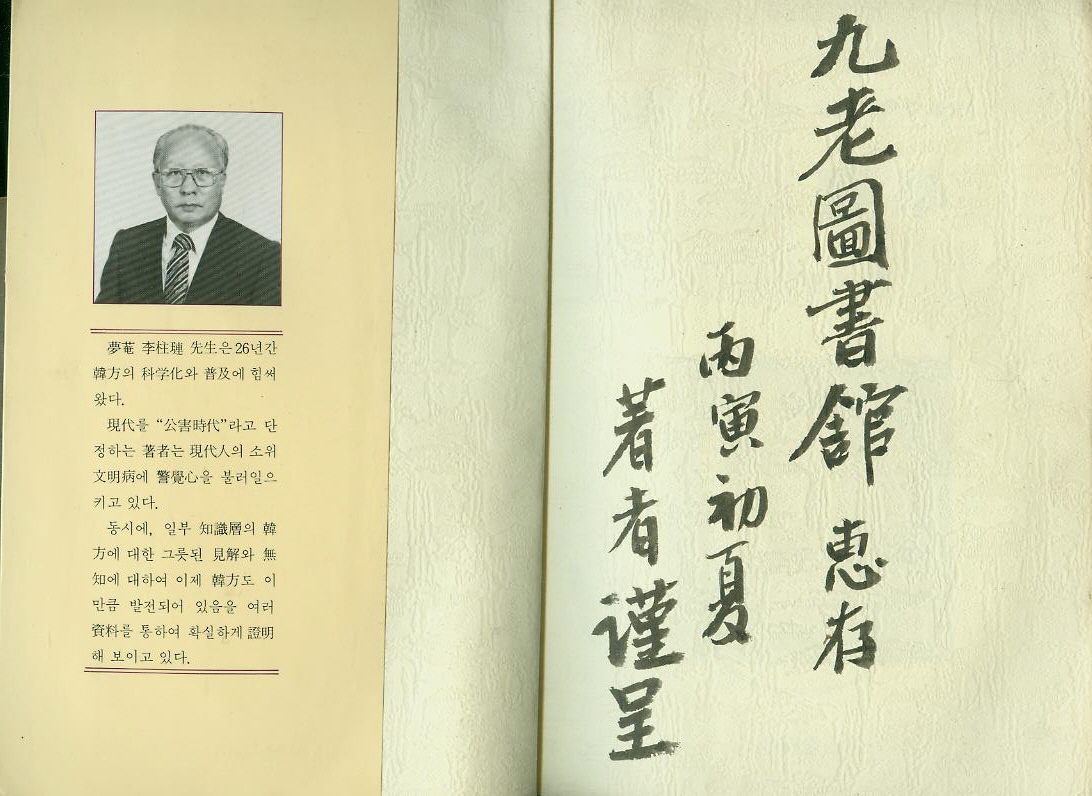 夢菴 李柱璉 先生은 26년간
韓方의 科学化와 普及에 힘써
왔다.
現代를 “公害時代”라고 단
정하는 著者는 現代人의 소위
文明病에 警覺心을 불러일으
키고 있다.
동시에, 일부 知識層의 韓
方에 대한 그릇된 見解와 無
知에 대하여 이제 韓方도 이
만큼 발전되어 있음을 여러
資料를 통하여 확실하게 證明
해 보이고 있다.
九老圖書舘 惠存
丙寅初夏
著者謹呈